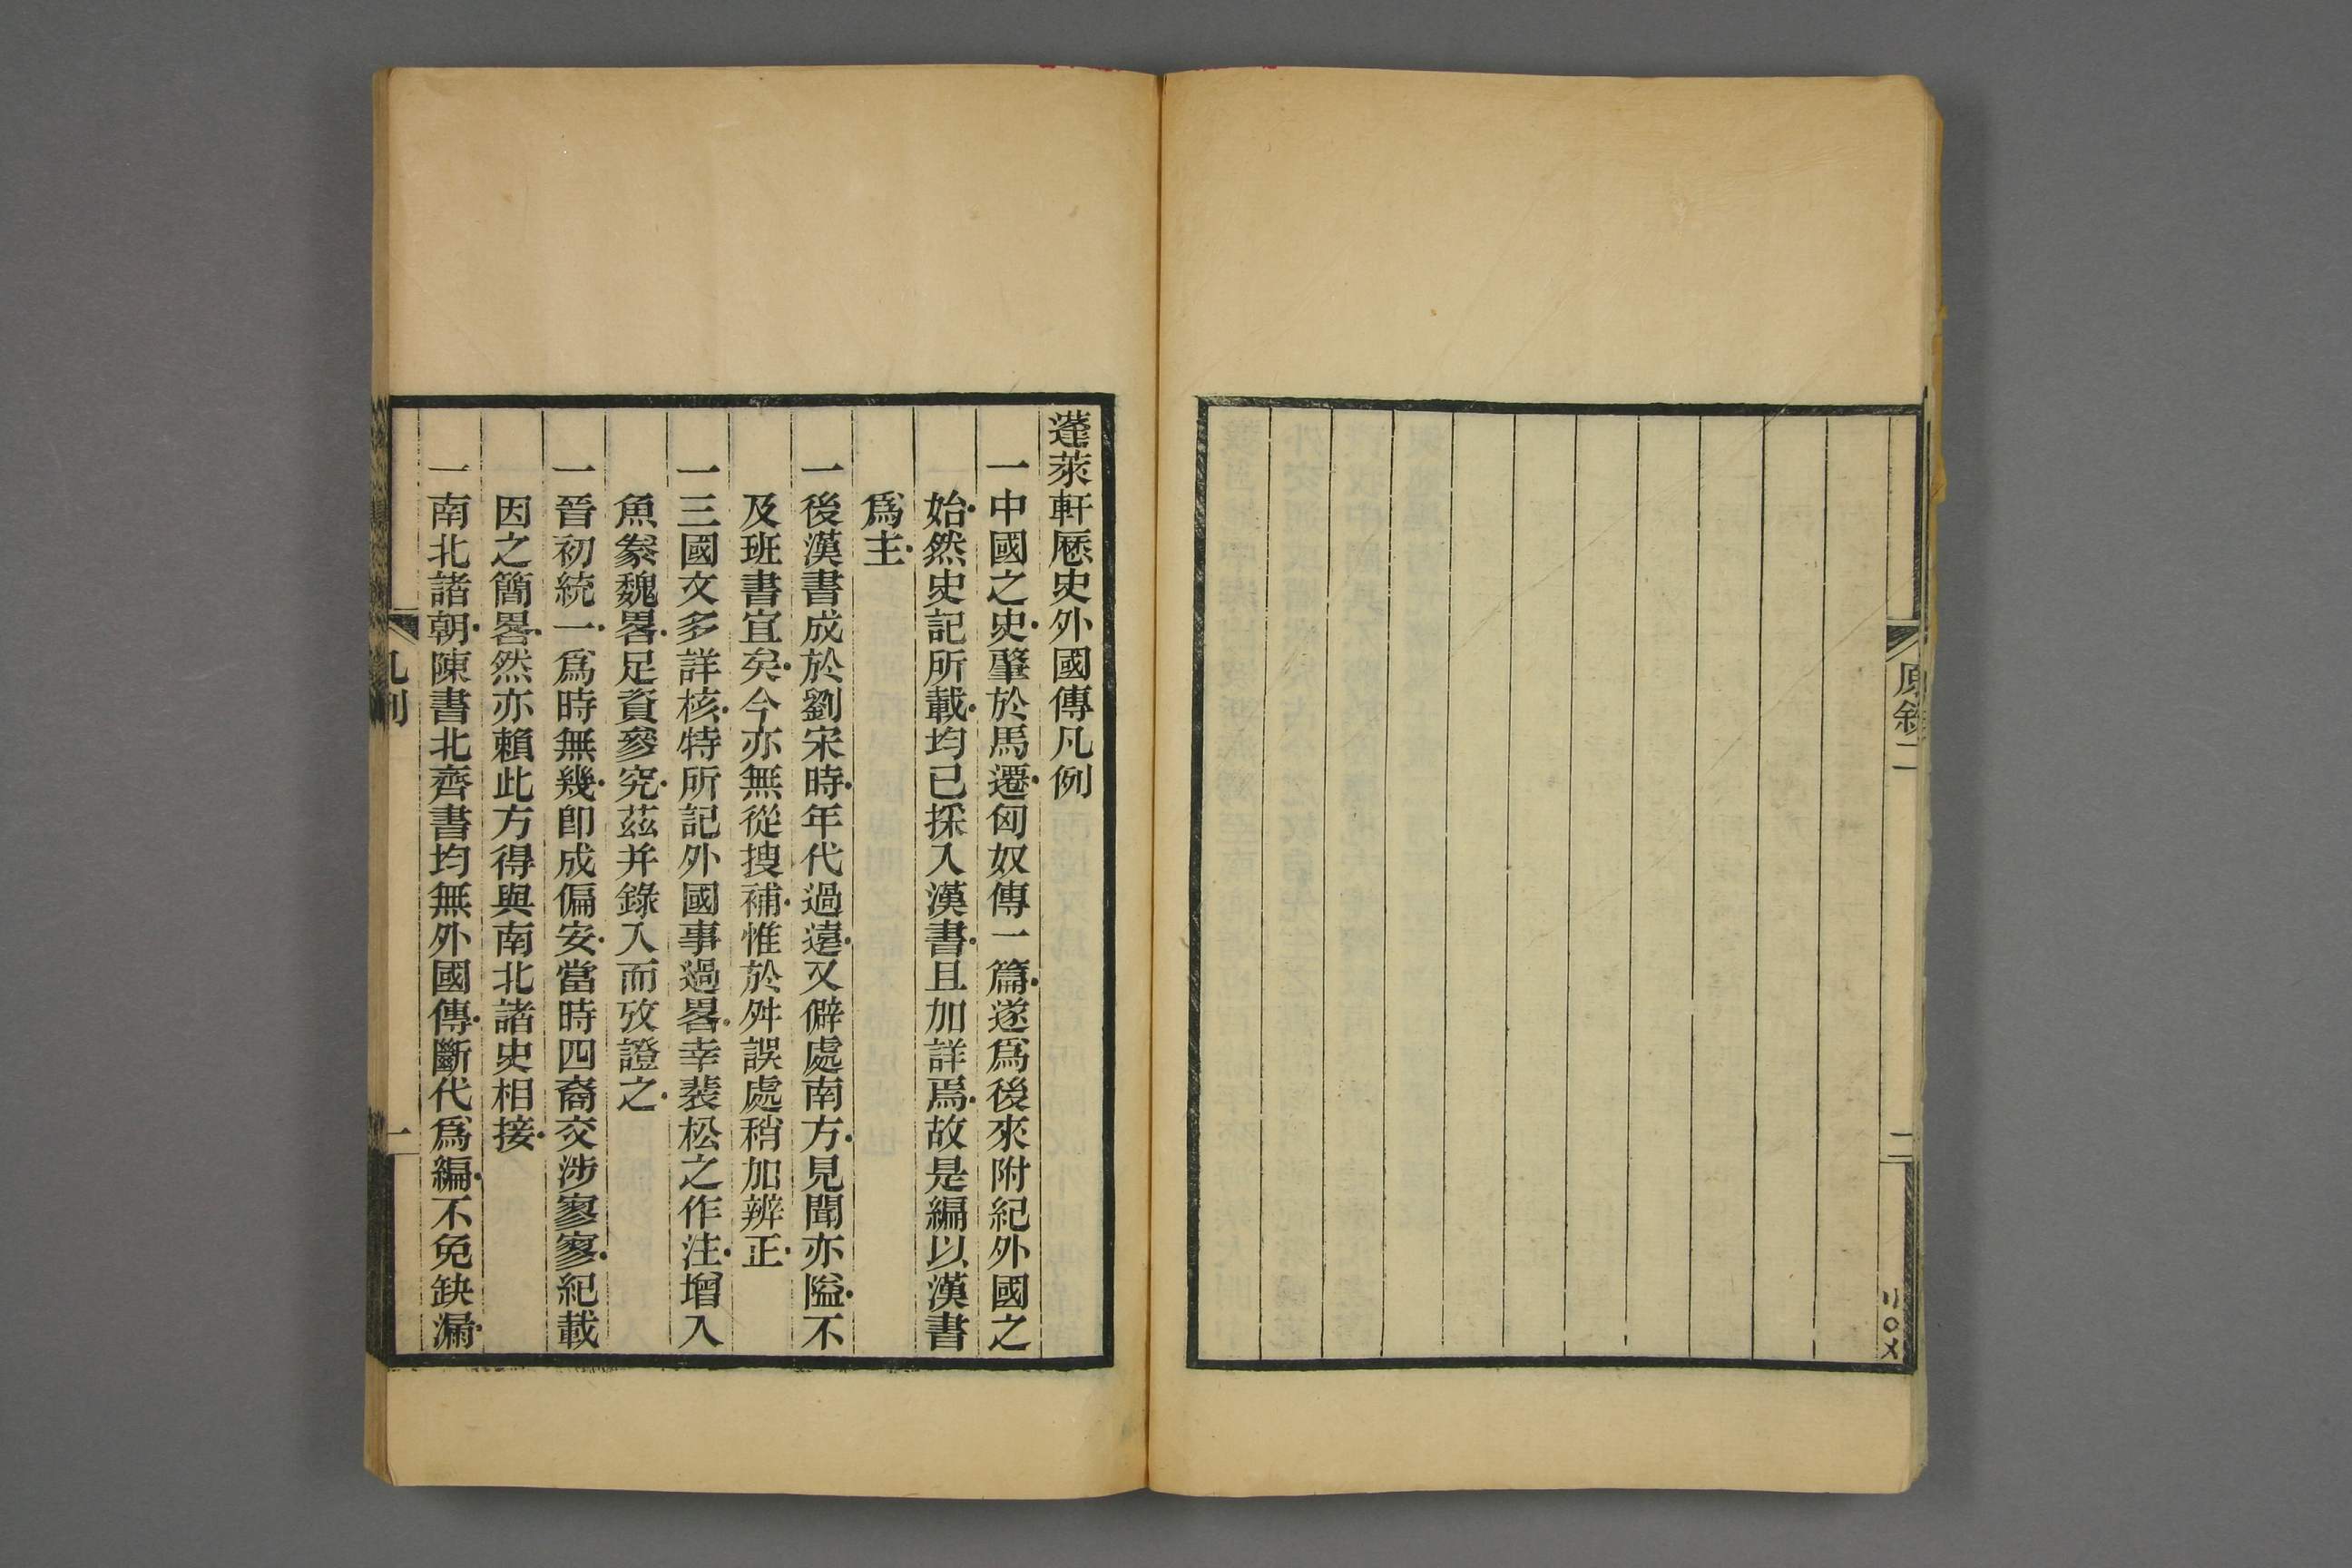 原敘二
二
〢〇〤
蓬萊軒歷史外國傳凡例
一中國之史肇於馬遷匈奴傳一篇遂爲後來附紀外國之
始然史記所載均已採入漢書且加詳焉故是編以漢書
爲主
一後漢書成於劉宋時年代過遠又僻處南方見聞亦隘不
及班書宜矣今亦無從搜補惟於舛誤處稍加辨正
一三國文多詳核特所記外國事過畧幸裴松之作注增入
魚豢魏畧足資參究茲并錄入而攷證之
一晉初統一爲時無幾卽成偏安當時四裔交涉寥寥紀載
因之簡畧然亦賴此方得與南北諸史相接
一南北諸朝陳書北齊書均無外國傳斷代爲編不免缺漏
凡例
一